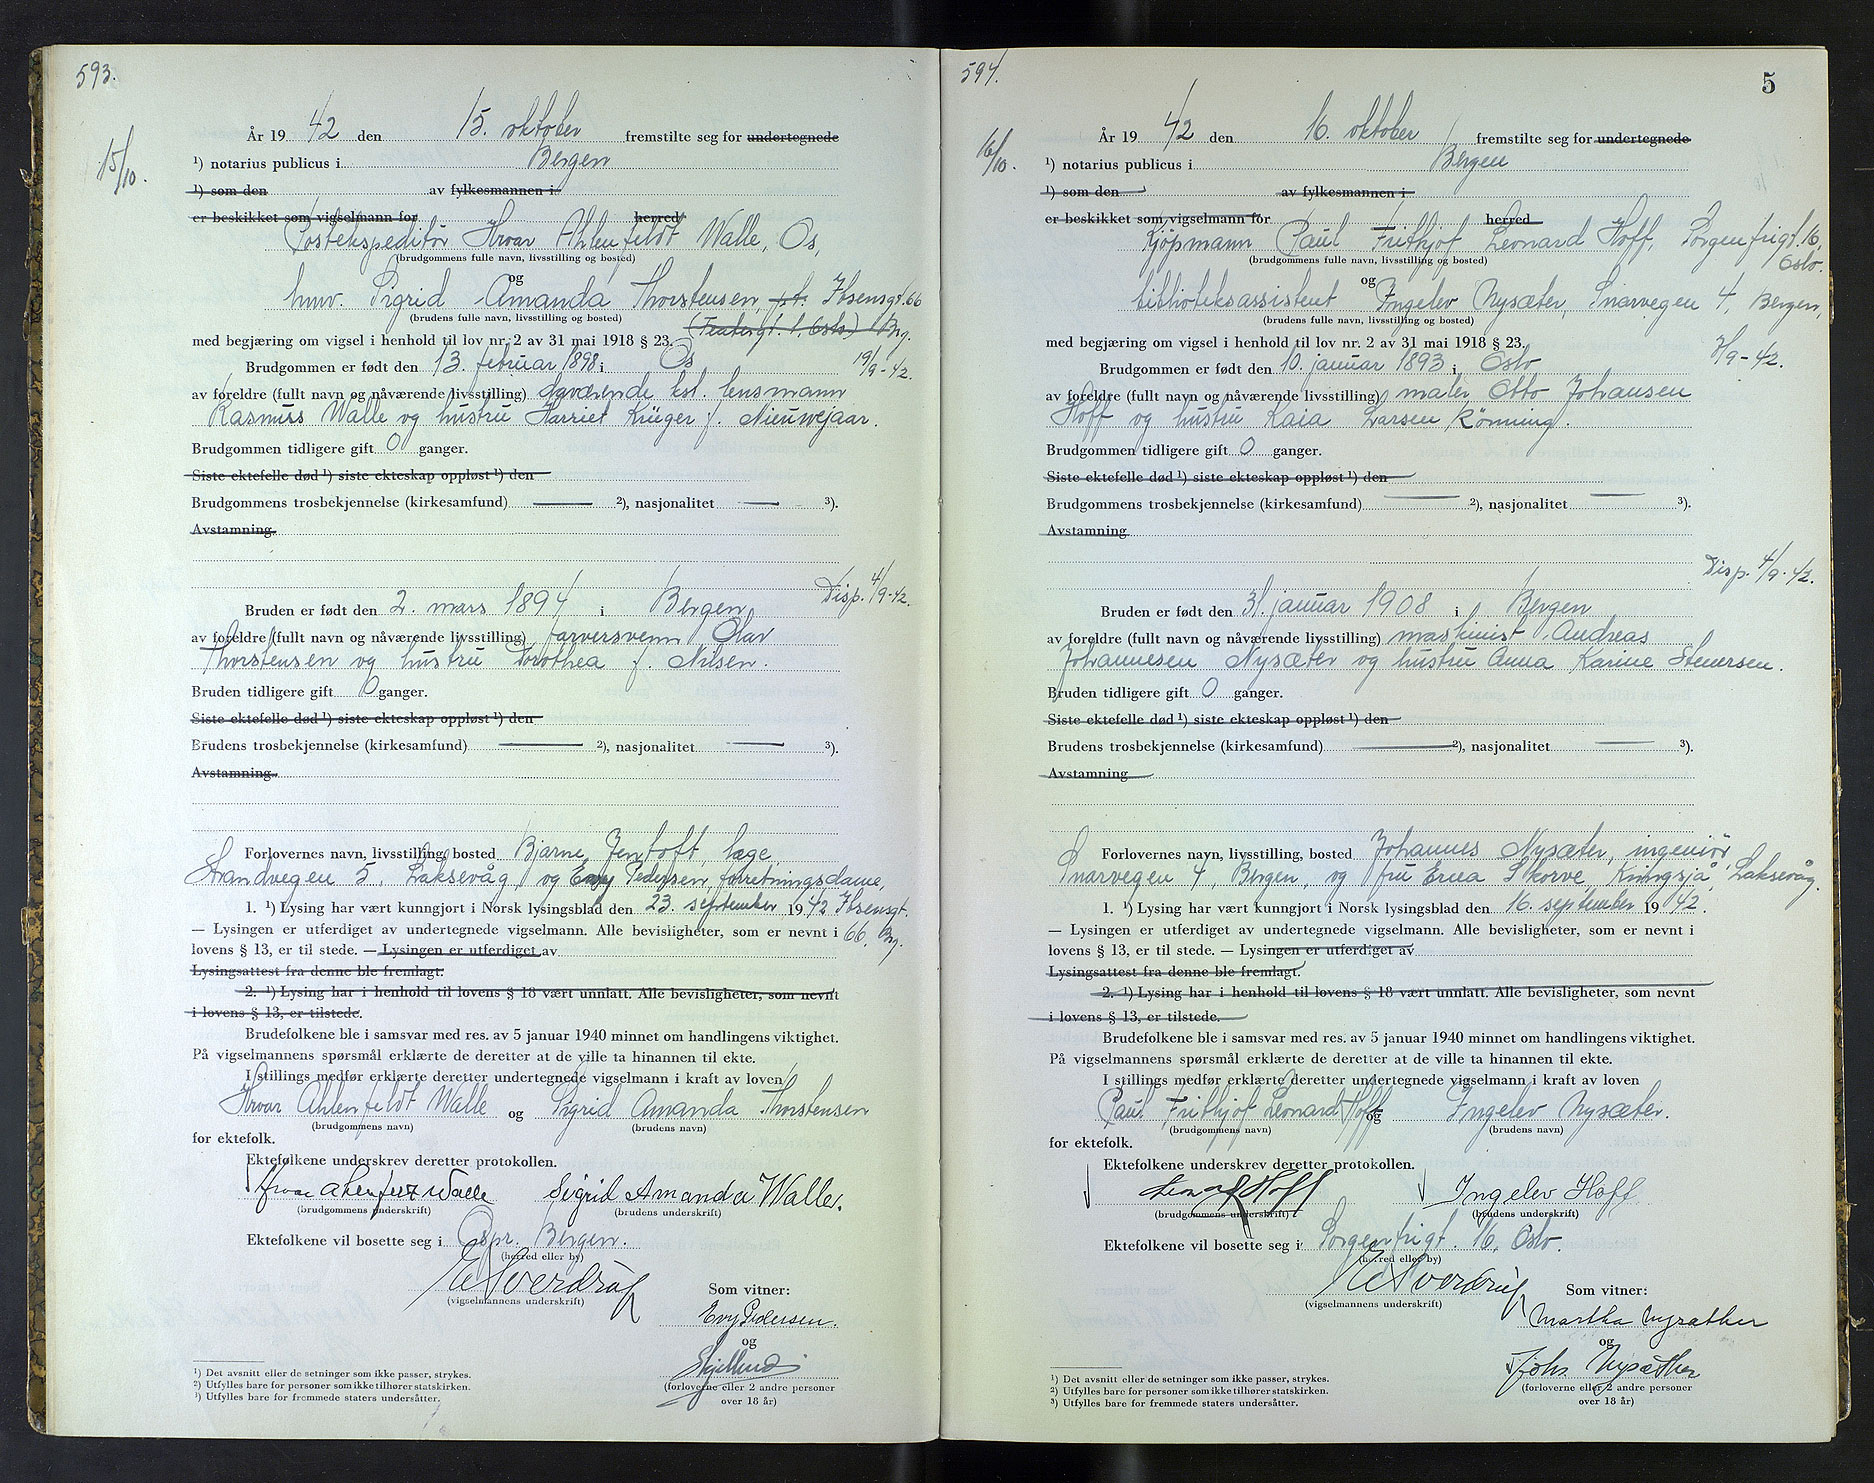 593.
15/10.
År 19 42 den 15. oktober fremstilte seg for undertegnede
¹) notarius publicus i Bergen
¹) som den av fylkesmannen i
er beskikket som vigselmann for herred
Postekspeditør Hroar Ahlenfeldt Walle, Os,
(brudgommens fulle navn, livsstilling og bosted)
og
husv. Sigrid Amanda Thorstensen, Ibsensgt. 66
(brudens fulle navn, livsstilling og bosted)
Brg.
med begjæring om vigsel i henhold til lov nr. 2 av 31 mai 1918 § 23.
Brudgommen er født den 13. februar 1898 i Os 19/9-42.
av foreldre (fullt navn og nåværende livsstilling) daværende kst. lensmann
Rasmus Walle og hustru Harriet Krüger f. Nieuwejaar.
Brudgommen tidligere gift 0 ganger.
Siste ektefelle død ¹) siste ekteskap oppløst ¹) den
Brudgommens trosbekjennelse (kirkesamfund) — ²), nasjonalitet — ³).
Avstamning.
Disp. 4/9-42.
Bruden er født den 2. mars 1894 i Bergen
av foreldre (fullt navn og nåværende livsstilling) farversvenn Olav
Thorstensen og hustru Dorothea f. Nilsen.
Bruden tidligere gift 0 ganger.
Siste ektefelle død ¹) siste ekteskap oppløst ¹) den
Brudens trosbekjennelse (kirkesamfund) — ²), nasjonalitet — ³).
Avstamning.
Forlovernes navn, livsstilling, bosted Bjarne Jentoft læge,
Strandvegen 5, Laksevåg og Evy Pedersen, forretningsdame,
1. ¹) Lysing har vært kunngjort i Norsk lysingsblad den 23. september 1942 Ibsensgt.
— Lysingen er utferdiget av undertegnede vigselmann. Alle bevisligheter, som er nevnt i 66, Brg.
lovens § 13, er til stede. — Lysingen er utferdiget av
Lysingsattest fra denne ble fremlagt.
2. ¹) Lysing har i henhold til lovens § 18 vært unnlatt. Alle bevisligheter, som nevnt
i lovens § 13, er tilstede.
Brudefolkene ble i samsvar med res. av 5 januar 1940 minnet om handlingens viktighet.
På vigselmannens spørsmål erklærte de deretter at de ville ta hinannen til ekte.
I stillings medfør erklærte deretter undertegnede vigselmann i kraft av loven
Hroar Ahlenfeldt Walle og Sigrid Amanda Thorstensen
(brudgommens navn) (brudens navn)
for ektefolk.
Ektefolkene underskrev deretter protokollen.
Hroar Ahlenfeldt Walle Sigrid Amanda Walle.
(brudgommens underskrift) (brudens underskrift)
Ektefolkene vil bosette seg i Bergen.
(herred eller by)
E Sverdrup
(vigselmannens underskrift)
Som vitner:
Evy Pedersen.
og
(forloverne eller 2 andre personer
over 18 år)
¹) Det avsnitt eller de setninger som ikke passer, strykes.
²) Utfylles bare for personer som ikke tilhører statskirken.
³) Utfylles bare for fremmede staters undersåtter.
594.
5
16/10.
År 19 42 den 16. oktober fremstilte seg for undertegnede
¹) notarius publicus i Bergen
¹) som den av fylkesmannen i
er beskikket som vigselmann for herred
Kjøpmann Paul Frithjof Leonard Hoff, Sorgenfrigt. 16,
Oslo.
(brudgommens fulle navn, livsstilling og bosted)
og
biblioteksassistent Ingelev Nysæter, Snarvegen 4, Bergen,
(brudens fulle navn, livsstilling og bosted)
med begjæring om vigsel i henhold til lov nr. 2 av 31 mai 1918 § 23.
Brudgommen er født den 10. januar 1893 i Oslo
av foreldre (fullt navn og nåværende livsstilling) maler Otto Johansen
Hoff og hustru Kaia Larsen Rønning.
Brudgommen tidligere gift 0 ganger.
Siste ektefelle død ¹) siste ekteskap oppløst ¹) den
Brudgommens trosbekjennelse (kirkesamfund) — ²), nasjonalitet — ³).
Avstamning
Disp. 4/9-42.
Bruden er født den 31. januar 1908 i Bergen
av foreldre (fullt navn og nåværende livsstilling) maskinist Andreas
Johannesen Nysæter og hustru Anna Karine Stenersen.
Bruden tidligere gift 0 ganger.
Siste ektefelle død ¹) siste ekteskap oppløst ¹) den
Brudens trosbekjennelse (kirkesamfund) — ²), nasjonalitet — ³).
Avstamning
Forlovernes navn, livsstilling, bosted Johannes Nysæter, ingeniør,
Snarvegen 4, Bergen, og fru Erna Skorve, Kringsjå, Laksevåg.
1. ¹) Lysing har vært kunngjort i Norsk lysingsblad den 16. september 1942.
— Lysingen er utferdiget av undertegnede vigselmann. Alle bevisligheter, som er nevnt i
lovens § 13, er til stede. — Lysingen er utferdiget av
Lysingsattest fra denne ble fremlagt.
2. ¹) Lysing har i henhold til lovens § 18 vært unnlatt. Alle bevisligheter, som nevnt
i lovens § 13, er tilstede.
Brudefolkene ble i samsvar med res. av 5 januar 1940 minnet om handlingens viktighet.
På vigselmannens spørsmål erklærte de deretter at de ville ta hinannen til ekte.
I stillings medfør erklærte deretter undertegnede vigselmann i kraft av loven
Paul Frithjof Leonard Hoff og Ingelev Nysæter.
(brudgommens navn) (brudens navn)
for ektefolk.
Ektefolkene underskrev deretter protokollen.
Leonard Hoff Ingelev Hoff
(brudgommens underskrift) (brudens underskrift)
Ektefolkene vil bosette seg i Sorgenfrigt. 16, Oslo.
(herred eller by)
E Sverdrup
(vigselmannens underskrift)
Som vitner:
Martha Nysæther
og
Johs Nysæther
(forloverne eller 2 andre personer
over 18 år)
¹) Det avsnitt eller de setninger som ikke passer, strykes.
²) Utfylles bare for personer som ikke tilhører statskirken.
³) Utfylles bare for fremmede staters undersåtter.